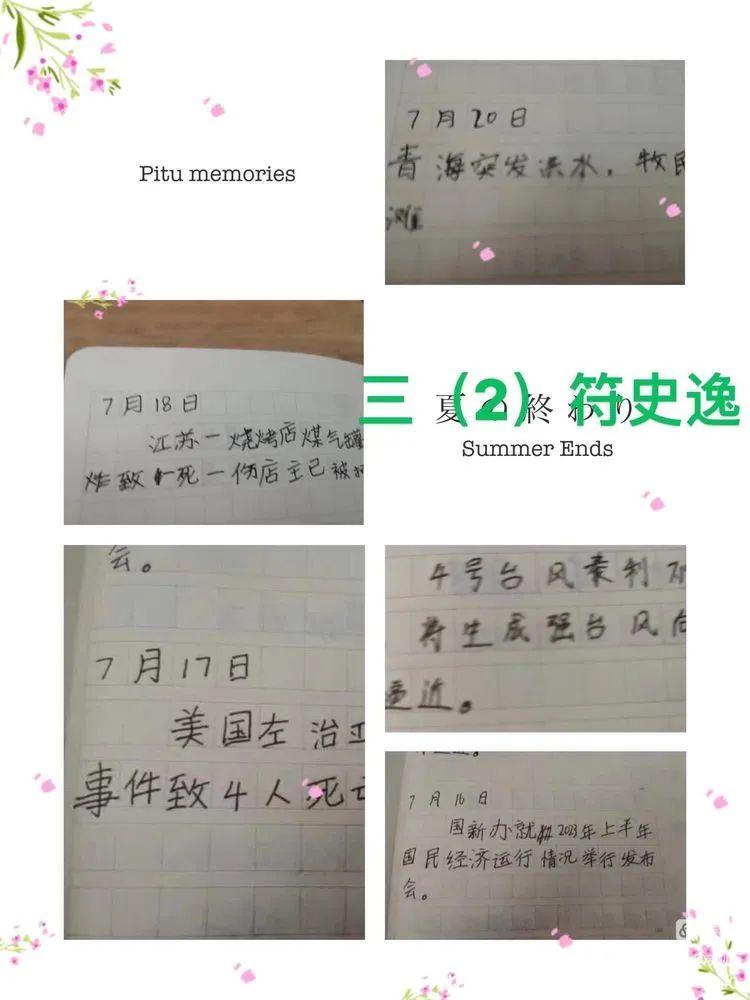 Pitu memories
7月20日
青海突发洪水，牧民
滩
7月18日
江苏一烧烤店煤气罐
炸致一死一伤店主已被
三（2）符史逸
夏の終わり
Summer Ends
会。
7月17日
美国左治亚
事件致4人死亡
4号台风泰利
将生成强台风向
逼近。
7月16日
国新办就2023年上半年
国民经济运行情况举行发布
会。